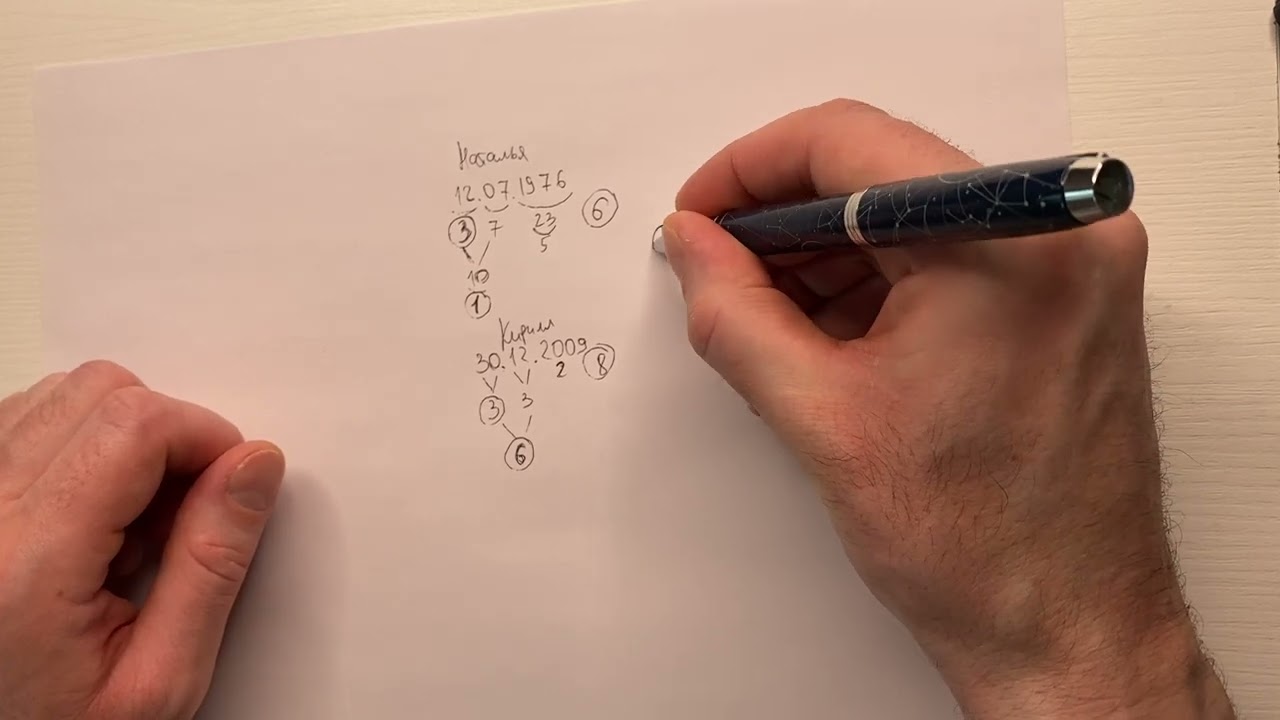 Наталья
12.07.1976
3 7 23 6
5
10
1
Кирилл
30.12.2009 8
2
3 3
6